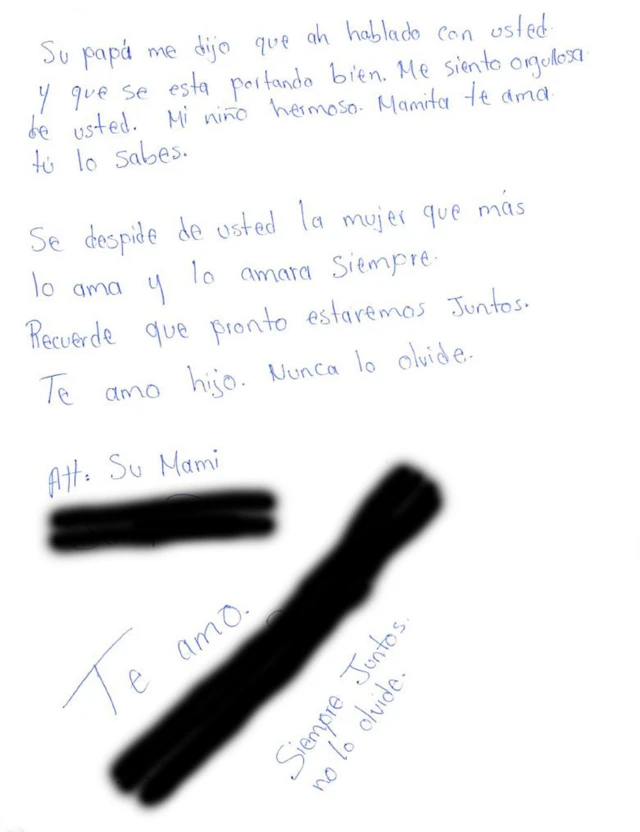 Su papá me dijo que ah hablado con usted
y que se esta portando bien. Me siento orgullosa
de usted. Mi niño hermoso. Mamita te ama
tú lo sabes.
Se despide de usted la mujer que más
lo ama y lo amara siempre.
Recuerde que pronto estaremos Juntos.
Te amo hijo. Nunca lo olvide.
Att: Su Mami
Te amo.
Siempre Juntos.
no lo olvide.